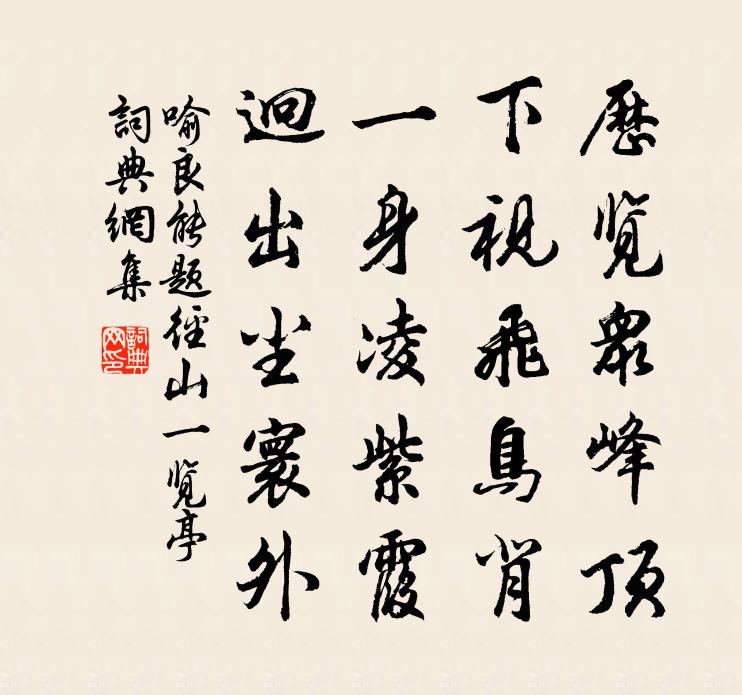 歷覽眾峰頂
下視飛鳥背
一身凌紫霞
迥出尘寰外
喻良能題徑山一覽亭
詞典網集
詞典网印